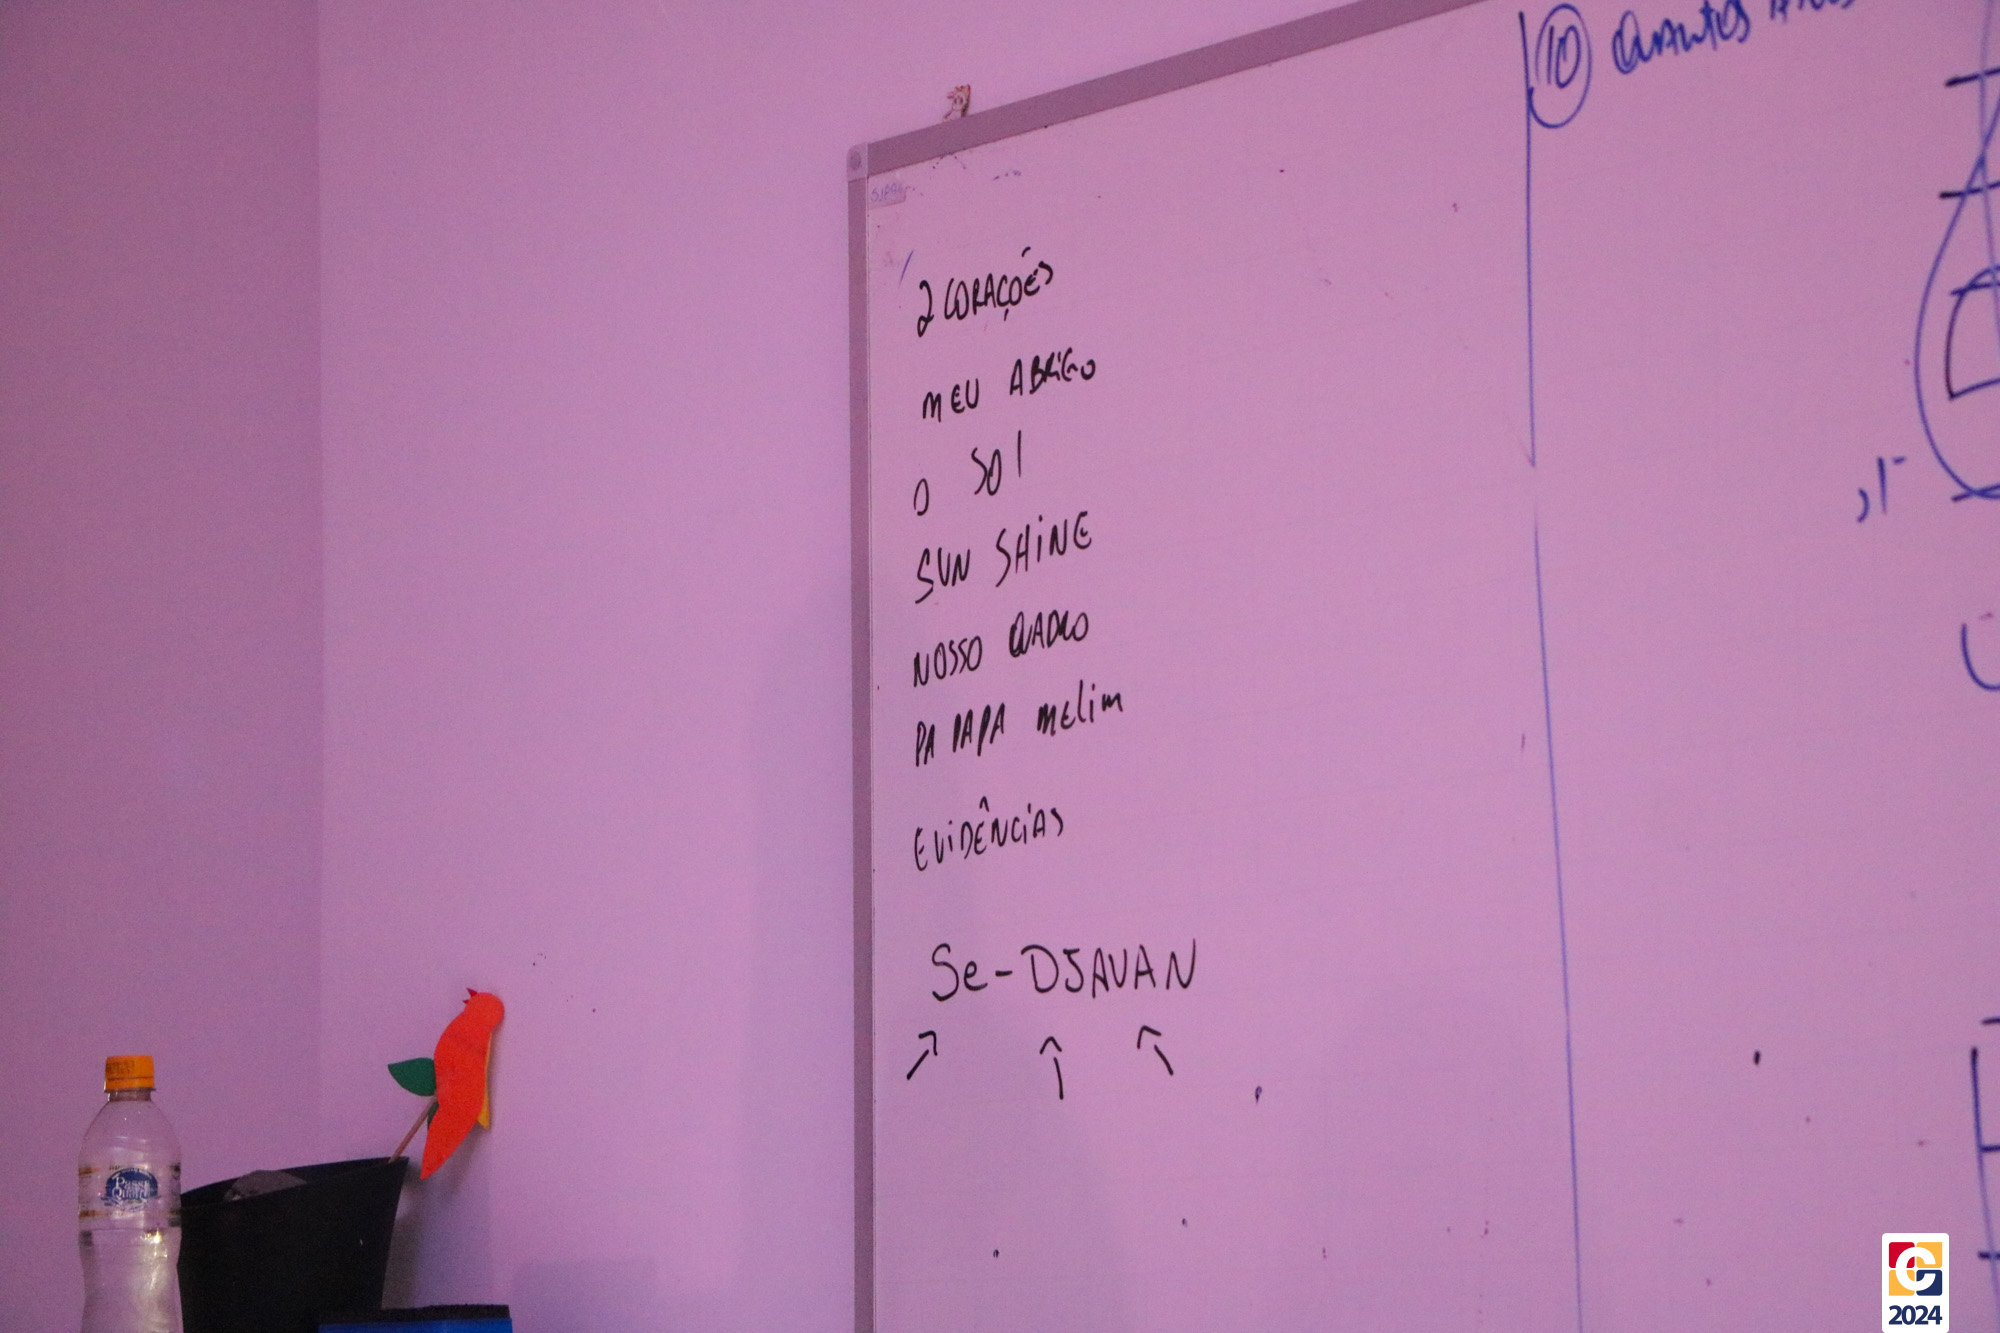 2 CORAÇÕES
MEU ABRIGO
O SOl
SUN SHINE
NOSSO QUADRO
PA PAPA MElim
EVIDÊNCIAS
Se-DJAVAN
10 QUANTOS
2024